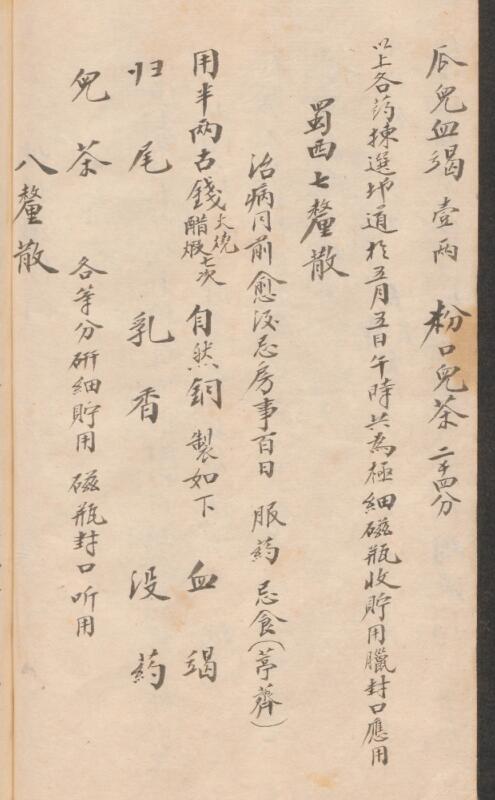 瓜兒血竭 壹兩 粉口兒茶 二本四分
以上各药揀選地道於五月五日午時共為極細磁瓶收貯用臘封口應用
蜀西七釐散
治病同前愈後忌房事百日 服药忌食(葶薺)
用半两古錢 火燒醋煅七次 自然銅 製如下 血竭
归尾 乳香 没药
兒茶 各等分研细貯用 磁瓶封口听用
八釐散